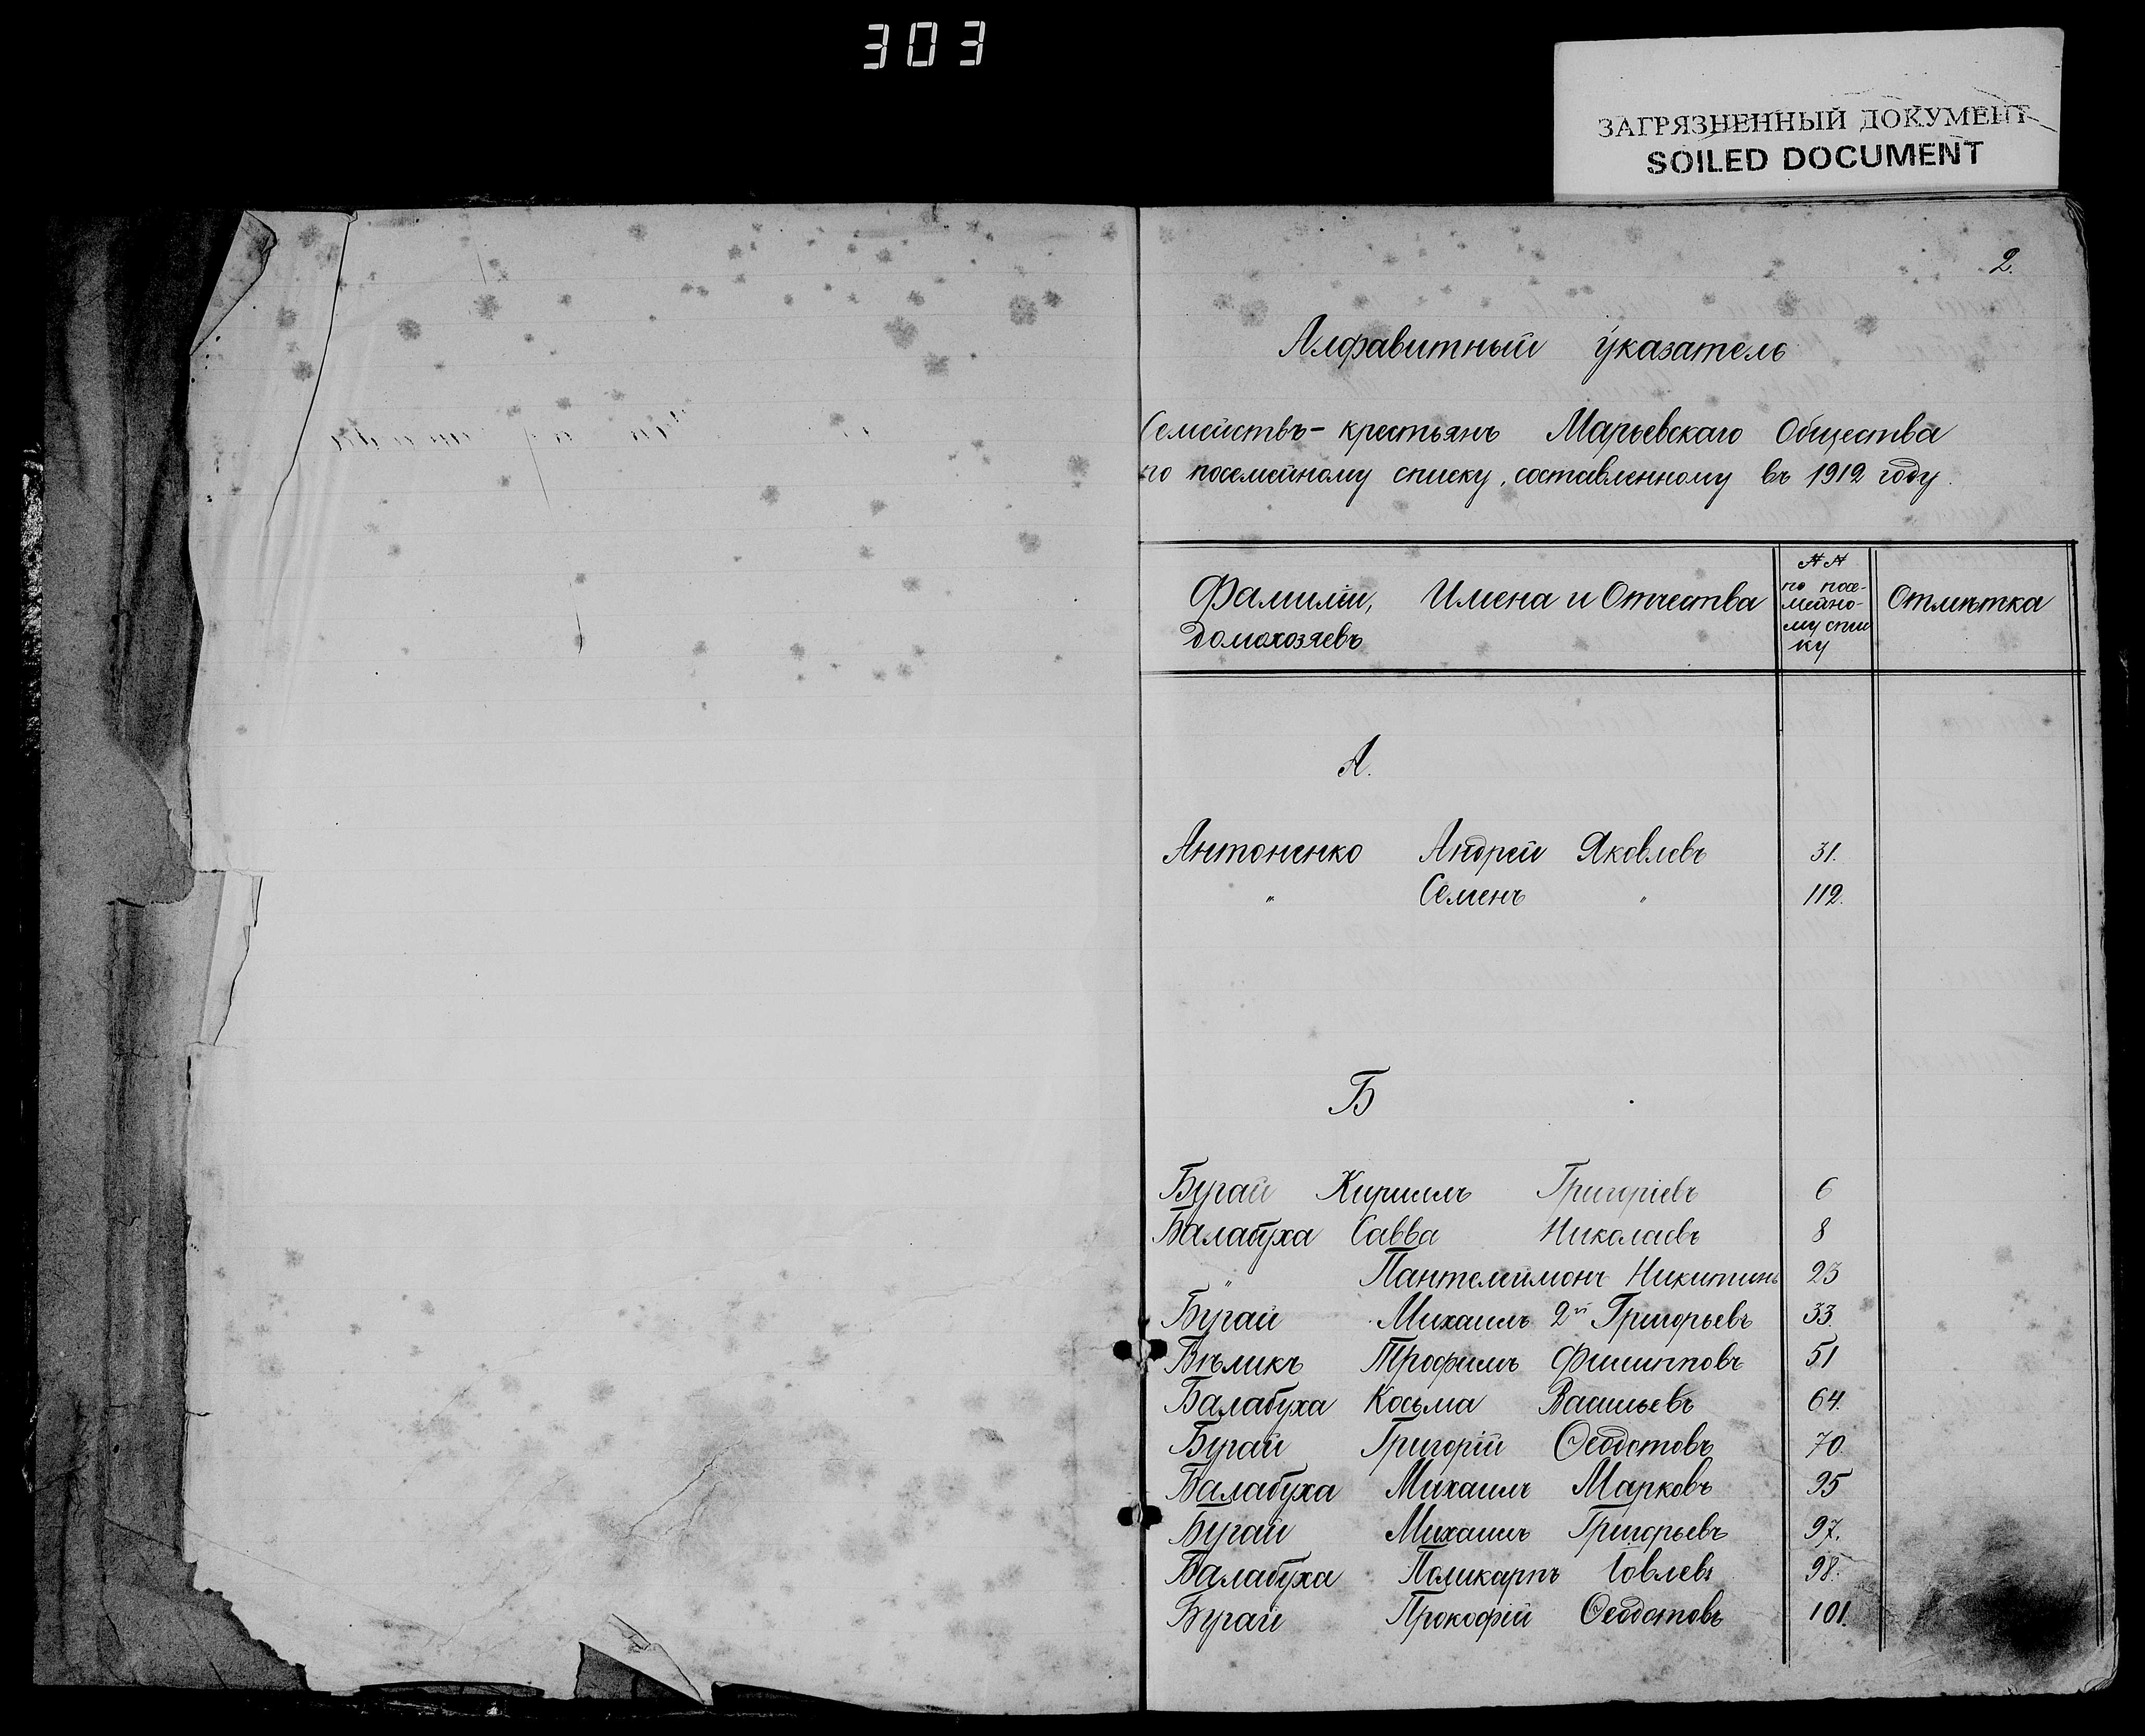 303
ЗАГРЯЗНЕННЫЙ ДОКУМЕНТ
SOILED DOCUMENT
2.
Алфавитный указатель
Семействъ-крестьянъ Марьевскаго Общества
по посемейному списку, составленному въ 1912 году.
Фамиліи, Имена и Отчества
домохозяевъ
№№
по посе-
мейно-
му спи
ку
Отмѣтка
А.
Антоненко Андрей Яковлевъ 31.
" Семенъ " 112.
Б
Бугай Кириллъ Григоріевъ 6
Балабуха Савва Николаевъ 8
" Пантелеимонъ Никитинъ 23
Бугай Михаилъ 2й Григорьевъ 33.
Бѣликъ Трофимъ Филипповъ 51
Балабуха Косьма Васильевъ 64.
Бугай Григорій Ѳеодотовъ 70
Балабуха Михаилъ Марковъ 95
Бугай Михаилъ Григорьевъ 97.
Балабуха Поликарпъ Іовлевъ 98.
Бугай Прокофій Ѳеодотовъ 101.